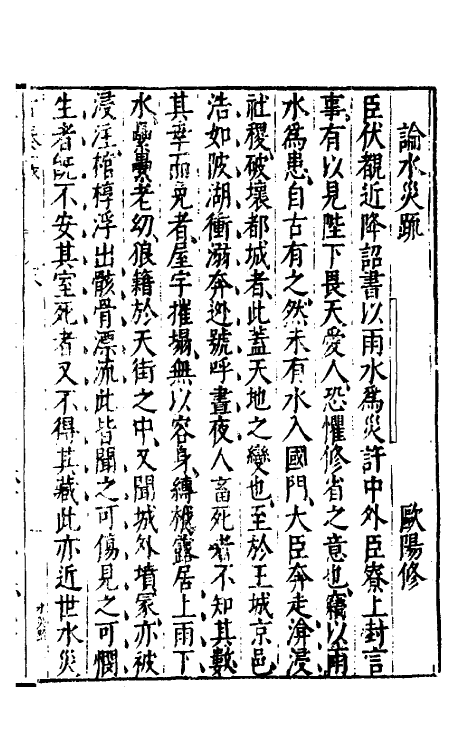 論水災疏 歐陽修
臣伏覩近降詔書以雨水為災許中外臣寮上封言
事有以見陛下畏天愛人恐懼修省之意也竊以雨
水為患自古有之然未有水入國門大臣奔走渰浸
社稷破壞都城者此蓋天地之變也至於王城京邑
浩如陂湖衝溺奔迸號呼晝夜人畜死者不知其數
其幸而免者屋宇摧塌無以容身縛栰露居上雨下
水纍纍老幼狼籍於天街之中又聞城外墳冢亦被
浸淫棺槨浮出骸骨漂流此皆聞之可傷見之可憫
生者既不安其室死者又不得其藏此亦近世水災